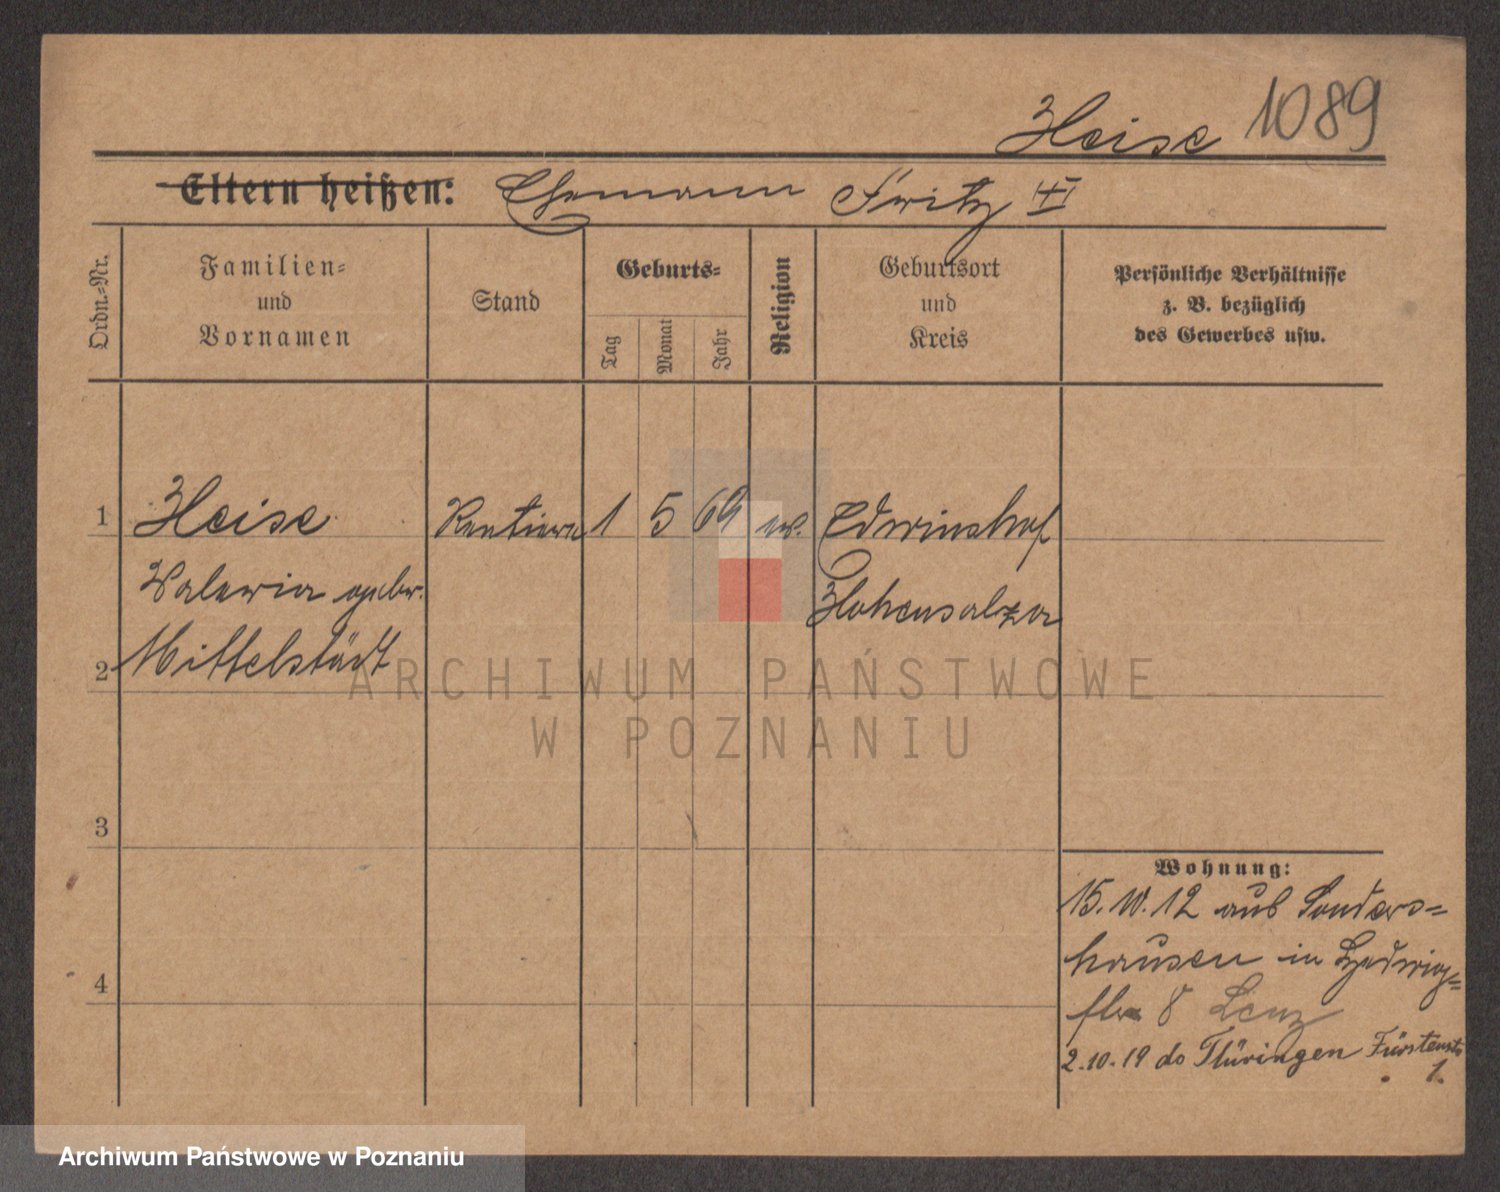 Heise 1089
Eltern heißen: Ehemann Fritz
Ordn.-Nr.
Familien-
und
Vornamen
Stand
Geburts-
Tag
Monat
Jahr
Religion
Geburtsort
und
Kreis
Persönliche Verhältnisse
z. B. bezüglich
des Gewerbes usw.
1 Heise Rentiere 1 5 69 ev. Edwinshof
Valeria gebr. Hohensalza
2 Mittelstädt
3
4
Wohnung:
15.10.12 aus Sonders-
hausen in Hedwig-
str 8 Lenz
2.10.19 do Thüringen Fürstenstr
1.
ARCHIWUM PAŃSTWOWE
W POZNANIU
Archiwum Państwowe w Poznaniu